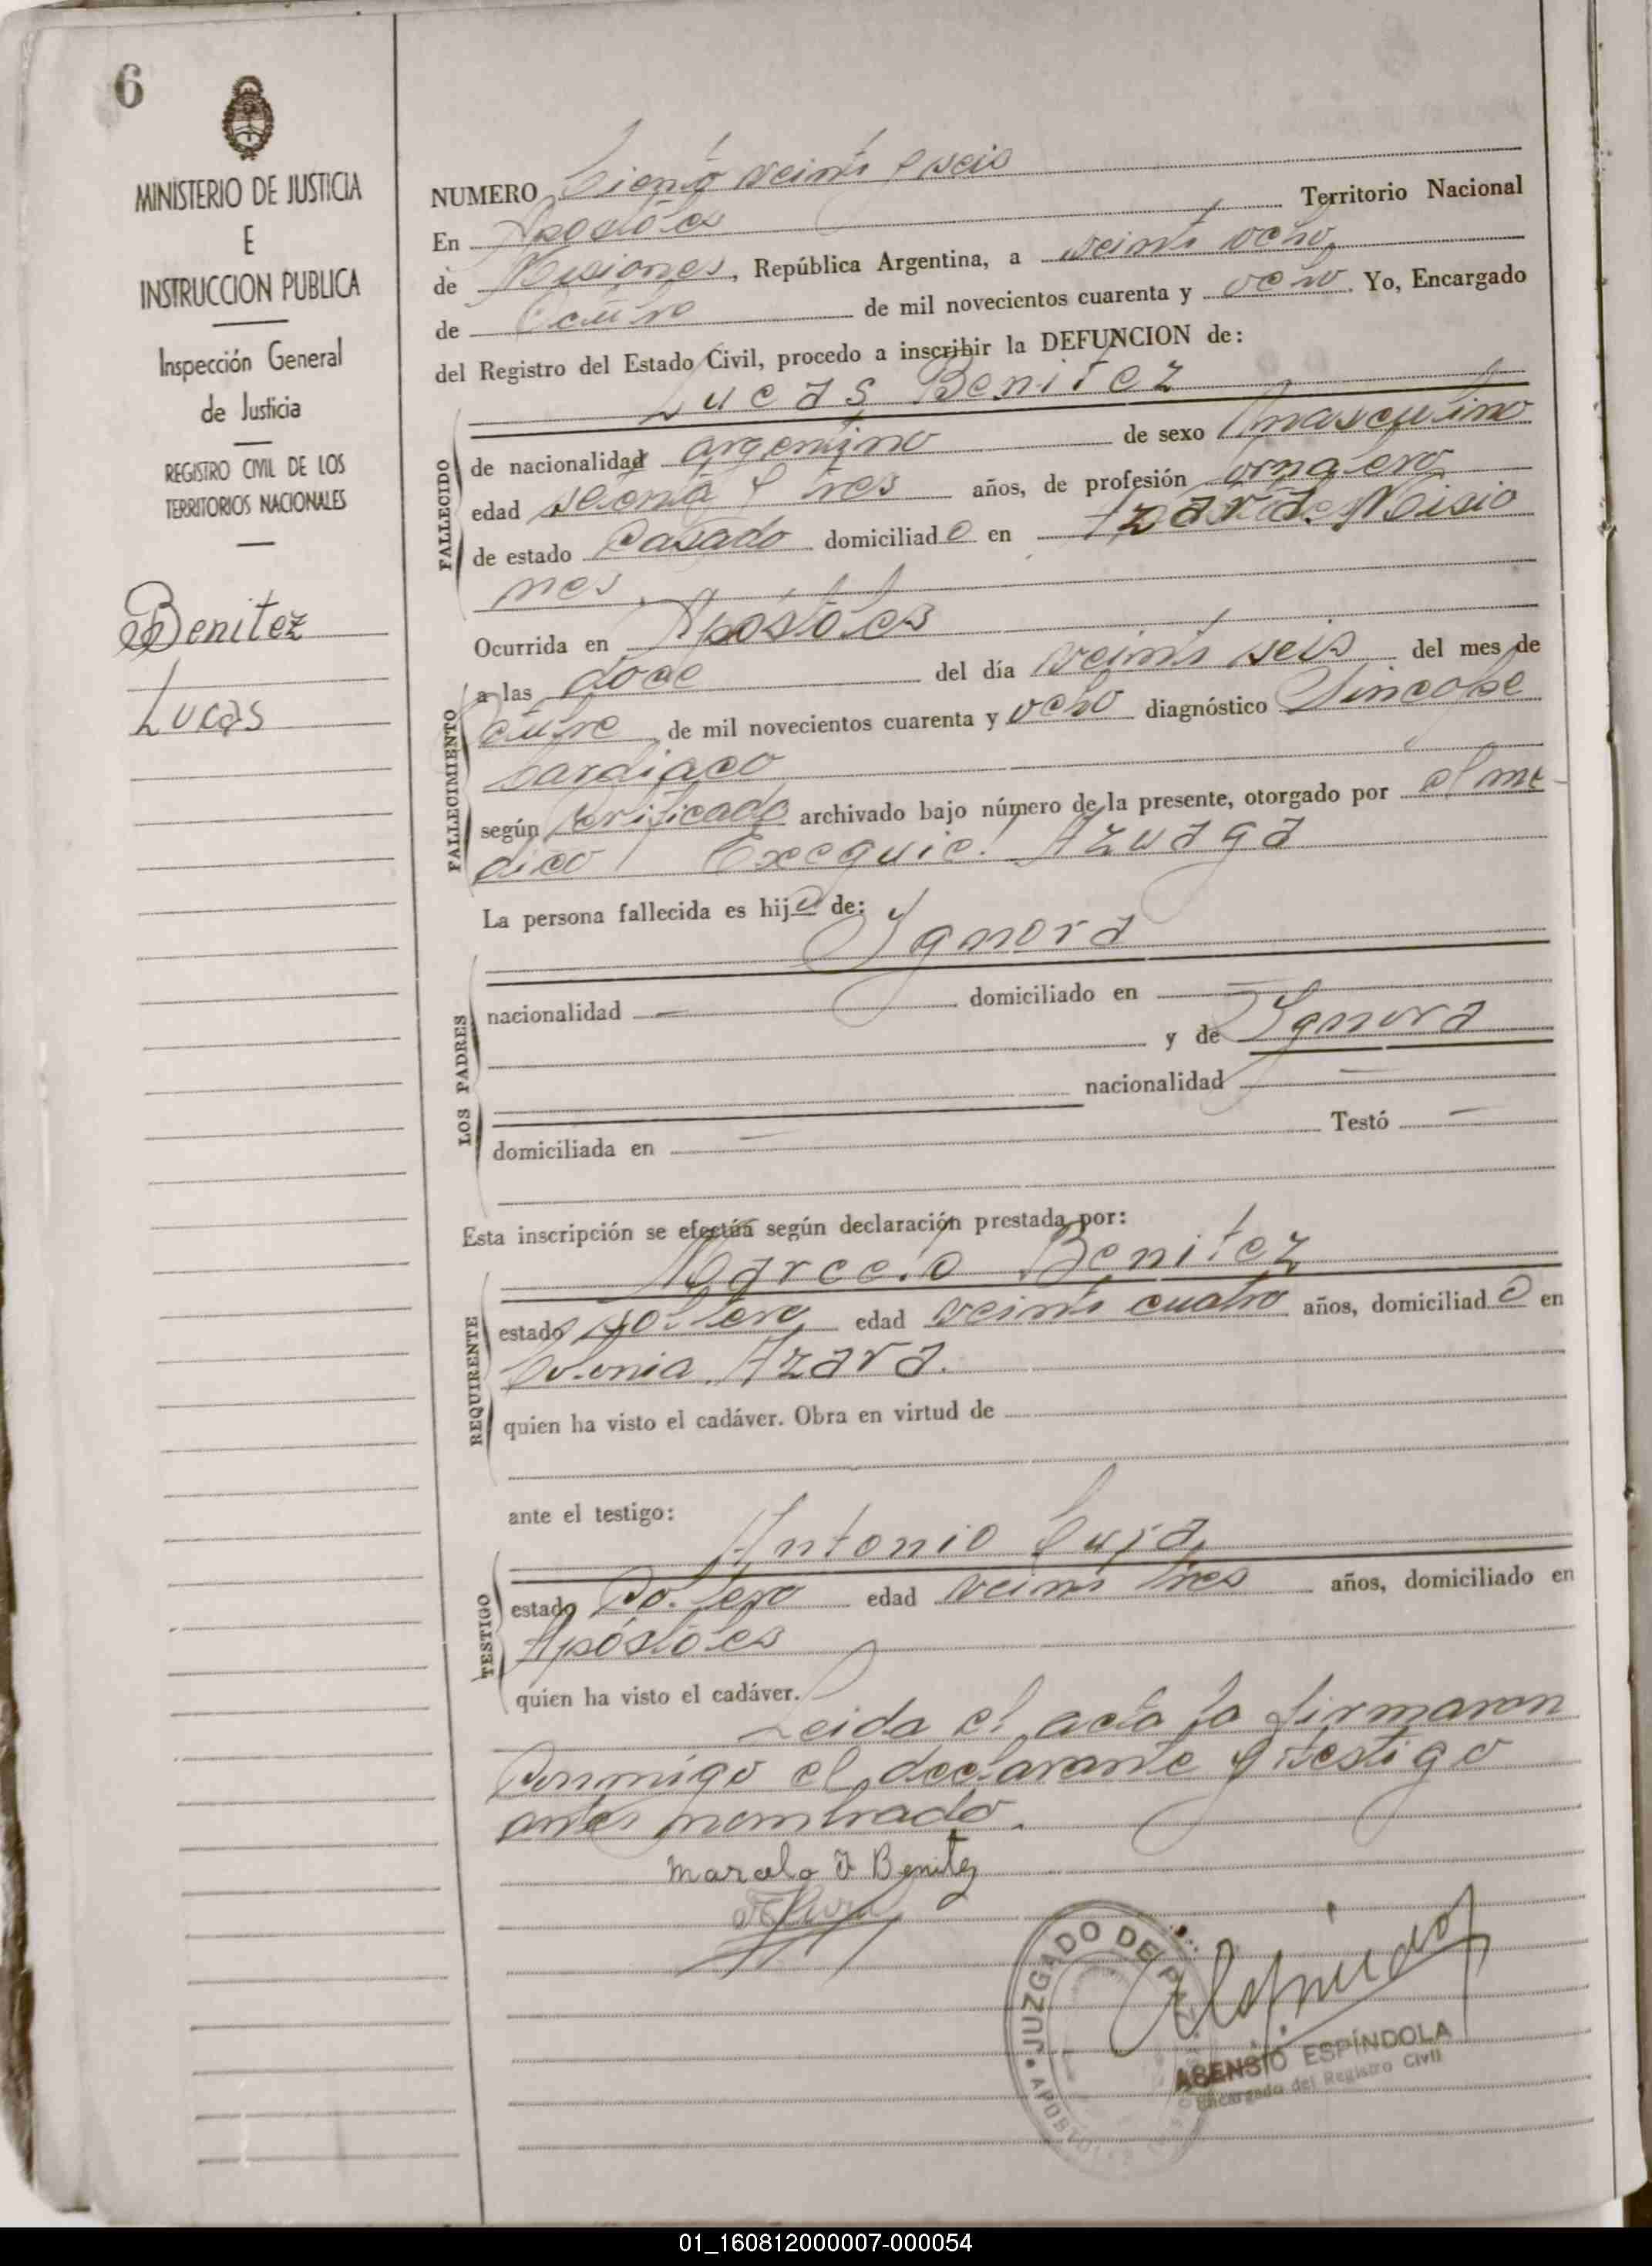 6
MINISTERIO DE JUSTICIA
E
INSTRUCCION PUBLICA
Inspección General
de Justicia
REGISTRO CIVIL DE LOS
TERRITORIOS NACIONALES
Benitez
Lucas
NUMERO Ciento veinte y seis
En Apóstoles Territorio Nacional
de Misiones, República Argentina, a veinte ocho
de Octubre de mil novecientos cuarenta y ocho. Yo, Encargado
del Registro del Estado Civil, procedo a inscribir la DEFUNCION de:
Lucas Benitez
FALLECIDO
de nacionalidad argentino de sexo masculino
edad setenta y tres años, de profesión jornalero
de estado Casado domiciliado en Azara. Misio
nes.
Ocurrida en Apóstoles
FALLECIMIENTO
a las doce del día veinte seis del mes de
Octubre de mil novecientos cuarenta y ocho diagnóstico Sincope
Cardiaco
según Certificado archivado bajo número de la presente, otorgado por el me-
dico Exequiel Azuaga
La persona fallecida es hijo de:
Ygnora
LOS PADRES
nacionalidad — domiciliado en —
y de Ygnora
nacionalidad —
domiciliada en — Testó —
Esta inscripción se efectúa según declaración prestada por:
Marcelo Benitez
REQUIRENTE
estado soltero edad veinte cuatro años, domiciliado en
Colonia Azara.
quien ha visto el cadáver. Obra en virtud de
ante el testigo:
Antonio
TESTIGO
estado Soltero edad veinte tres años, domiciliado en
Apóstoles
quien ha visto el cadáver.
Leida el acta la firmaron
Conmigo el declarante y testigo
antes nombrado.
Marcelo J Benitez
JUZGADO DE PAZ
APOSTOLES
ASENSIO ESPÍNDOLA
Encargado del Registro Civil
01_160812000007-000054